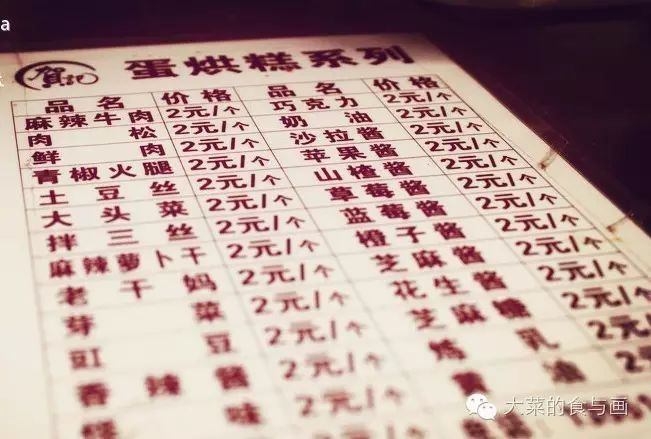 a
蛋烘糕系列
品名 价格 品名 价格
麻辣牛肉 2元/个 巧克力 2元/个
肉松 2元/个 奶油 2元/个
鲜肉 2元/个 沙拉酱 2元/个
青椒火腿 2元/个 苹果酱 2元/个
土豆丝 2元/个 山楂酱 2元/个
大头菜 2元/个 草莓酱 2元/个
拌三丝 2元/个 蓝莓酱 2元/个
麻辣萝卜干 2元/个 橙子酱 2元/个
老干妈 2元/个 芝麻酱 2元/个
芽菜 2元/个 花生酱 2元/个
豇豆 2元/个 芝麻糖 2元/个
香辣酱 2元/个 炼乳 2元/个
味 2元/个 黄油 2元
大菜的食与画